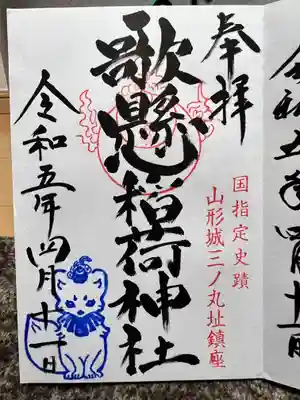 奉拝
国指定史蹟
山形城三ノ丸址鎮座
歌懸稲荷神社
令和五年四月十一日